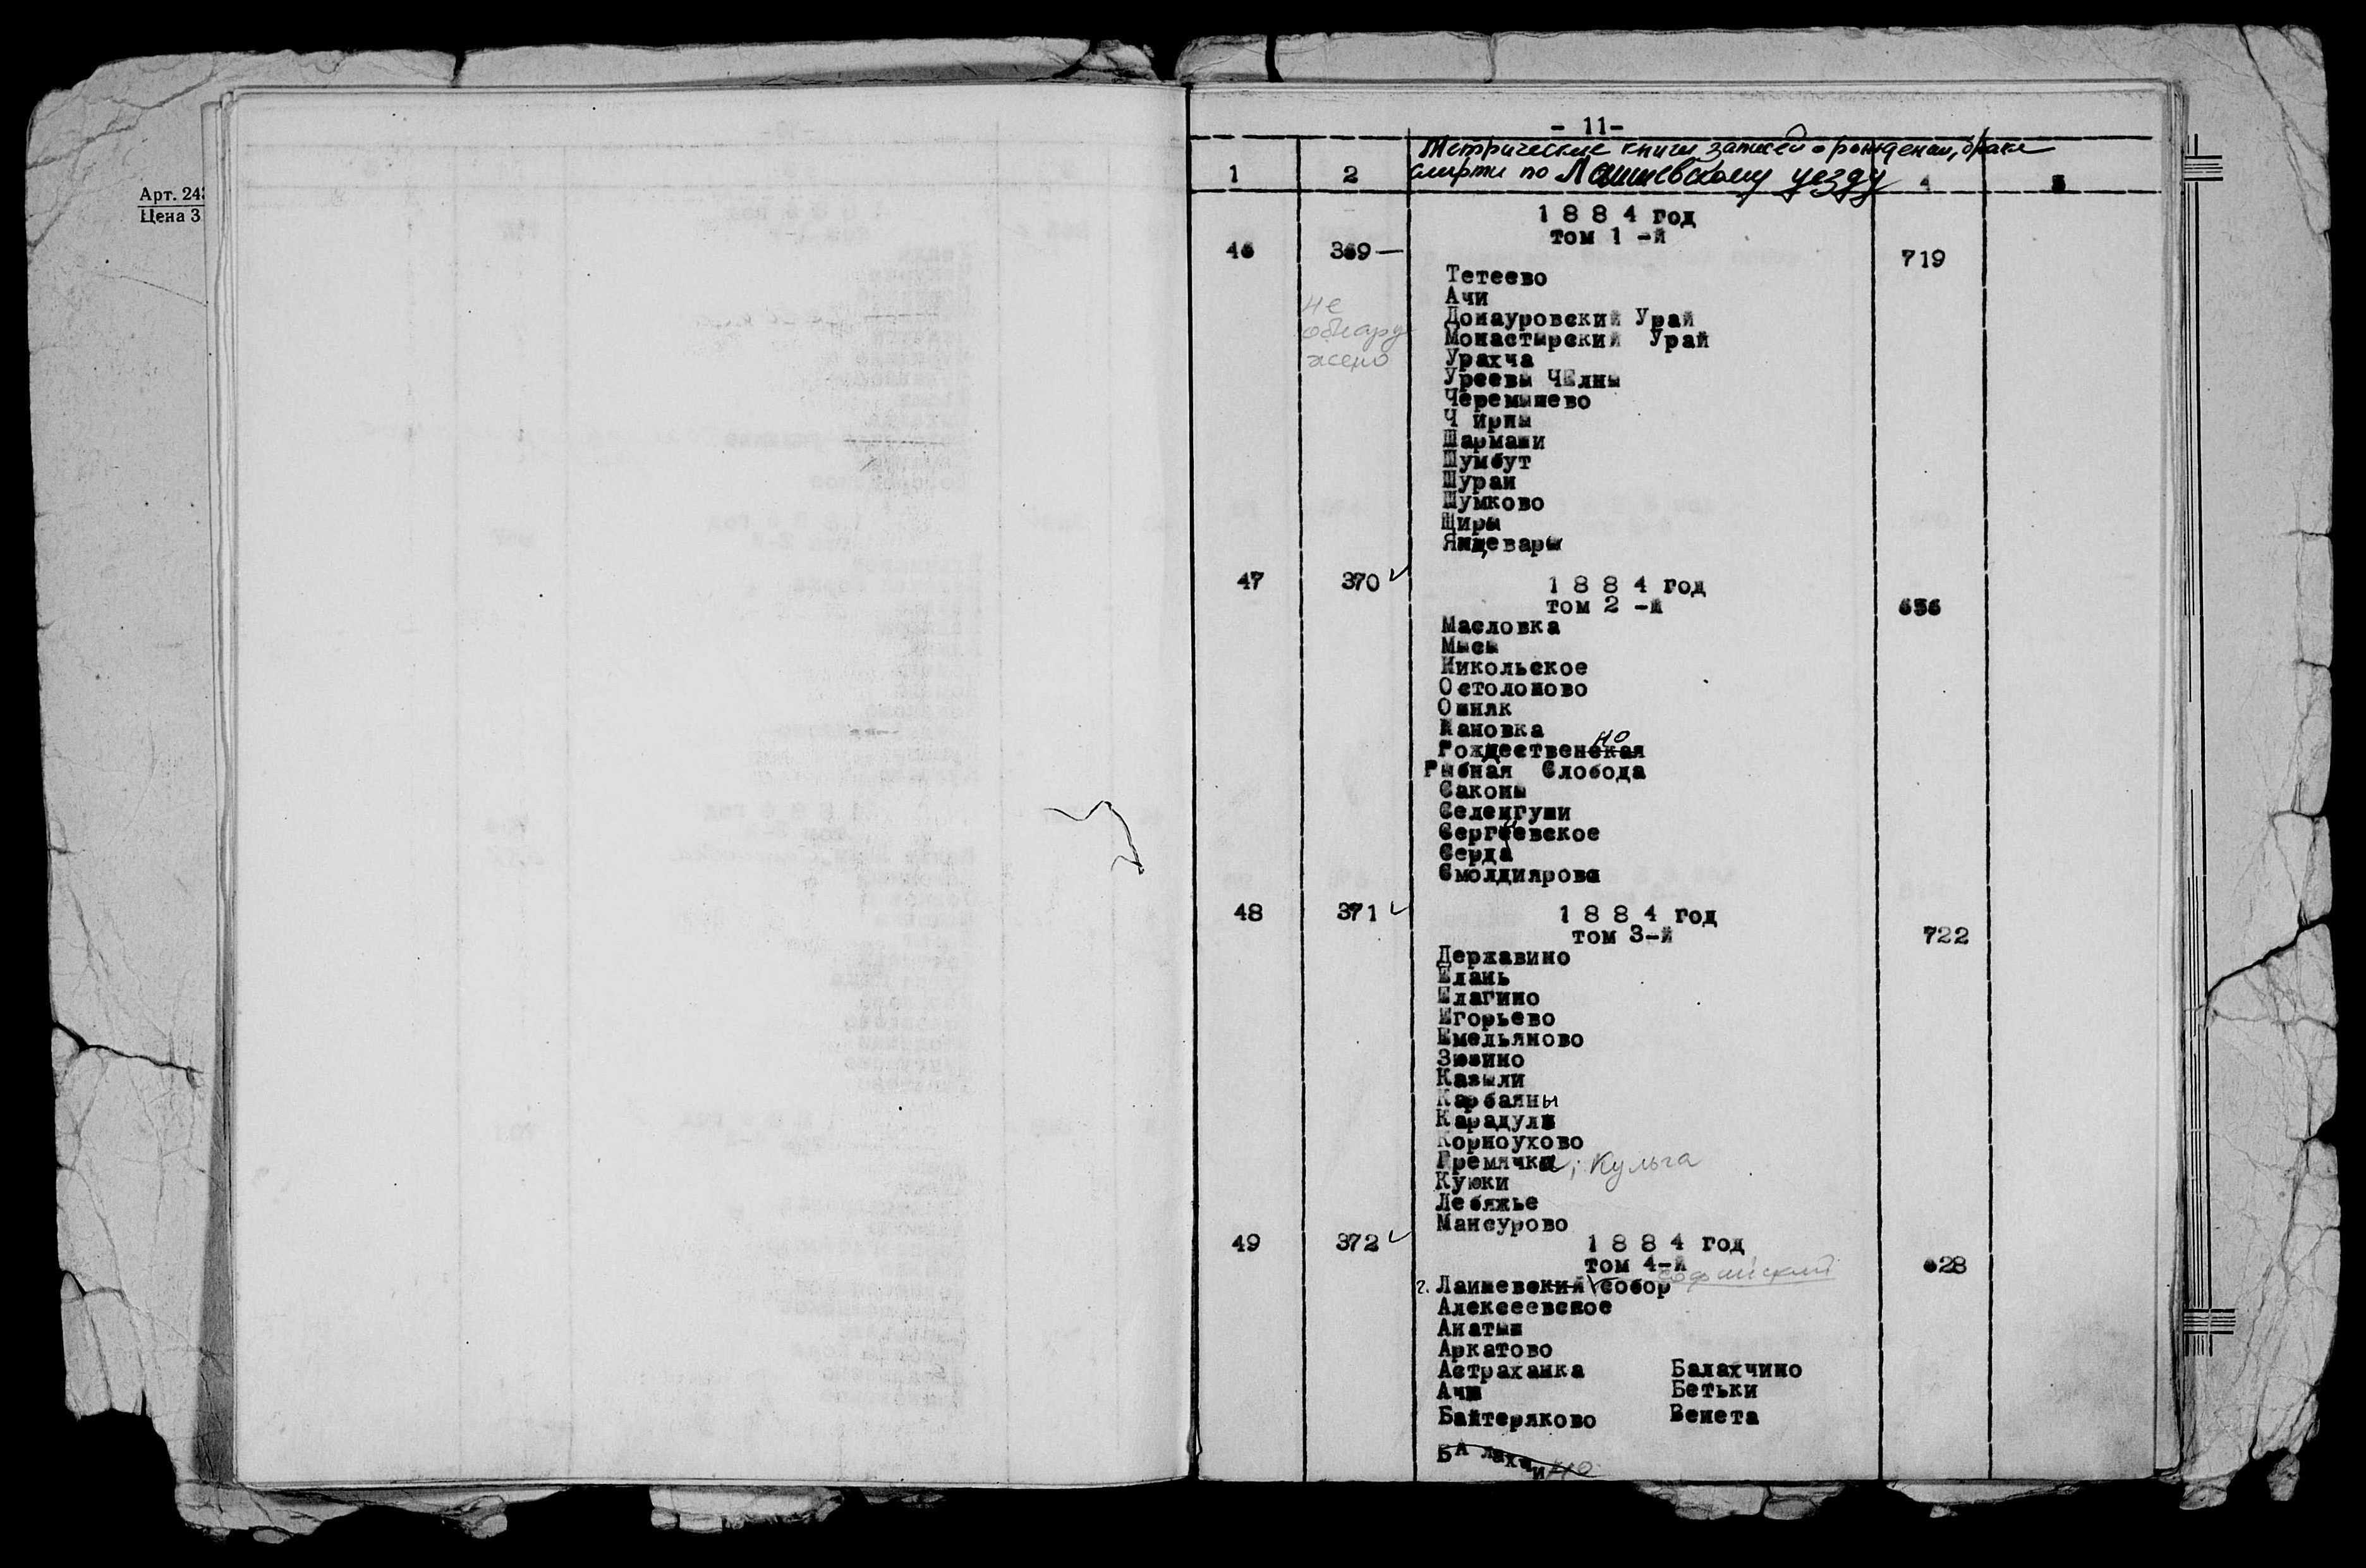 Арт. 243
Цена 3
- 11-
Метрические книги записей о рождении, браке
смерти по Лаишевскому уезду
1 2 4 5
1 8 8 4 год
том 1 -й
46 369 — 719
Тетеево
Ачи
не обнаружено
Донауровский Урай
Монастырский Урай
Урахча
Уреевы ЧЕлны
Черемышево
Ч ирпы
Шармаши
Шумбут
Шуран
Шумково
Ширы
Янцевары
47 370 ✓ 1 8 8 4 год
том 2 -й 656
Масловка
Мысы
Никольское
Остолопово
Ошняк
Пановка
но
Рождественская
Рыбная Слобода
Саконы
Селенгуши
Сергеевское
Серда
Смолдиярово
48 371 ✓ 1 8 8 4 год
том 3-й 722
Державино
Елань
Елагино
Егорьево
Емельяново
Зюзино
Казыли
Карбаяны
Карадули
Корноухово
Кремячка; Кульга
Куюки
Лебяжье
Мансурово
49 372 ✓ 1 8 8 4 год
том 4-й 628
г. Лаишевский собор Софийский
Алексеевское
Анатыш
Аркатово
Астраханка Балахчино
Ачи Бетьки
Байтеряково Венета
БАлахчино